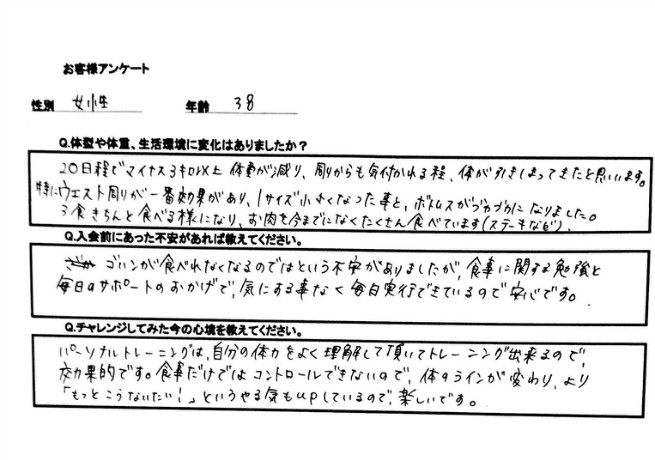 お客様アンケート
性別 女性 年齢 38
Q.体型や体重、生活環境に変化はありましたか？
20日程でマイナス3キロ以上 体重が減り、周りからも気付かれる程、体が引きしまってきたと思います。
特にウエスト周りが一番効果があり、1サイズ小さくなった事と、ボトムスがブカブカになりました。
3食きちんと食べる様になり、お肉を今までになくたくさん食べています(ステーキなど)。
Q.入会前にあった不安があれば教えてください。
ゴハンが食べれなくなるのではという不安がありましたが、食事に関する勉強と
毎日のサポートのおかげで、気にする事なく毎日実行できているので安心です。
Q.チャレンジしてみた今の心境を教えてください。
パーソナルトレーニングは、自分の体力をよく理解して頂いてトレーニング出来るので、
効果的です。食事だけではコントロールできないので、体のラインが変わり、より
「もっとこうなりたい！」というやる気もupしているので、楽しいです。